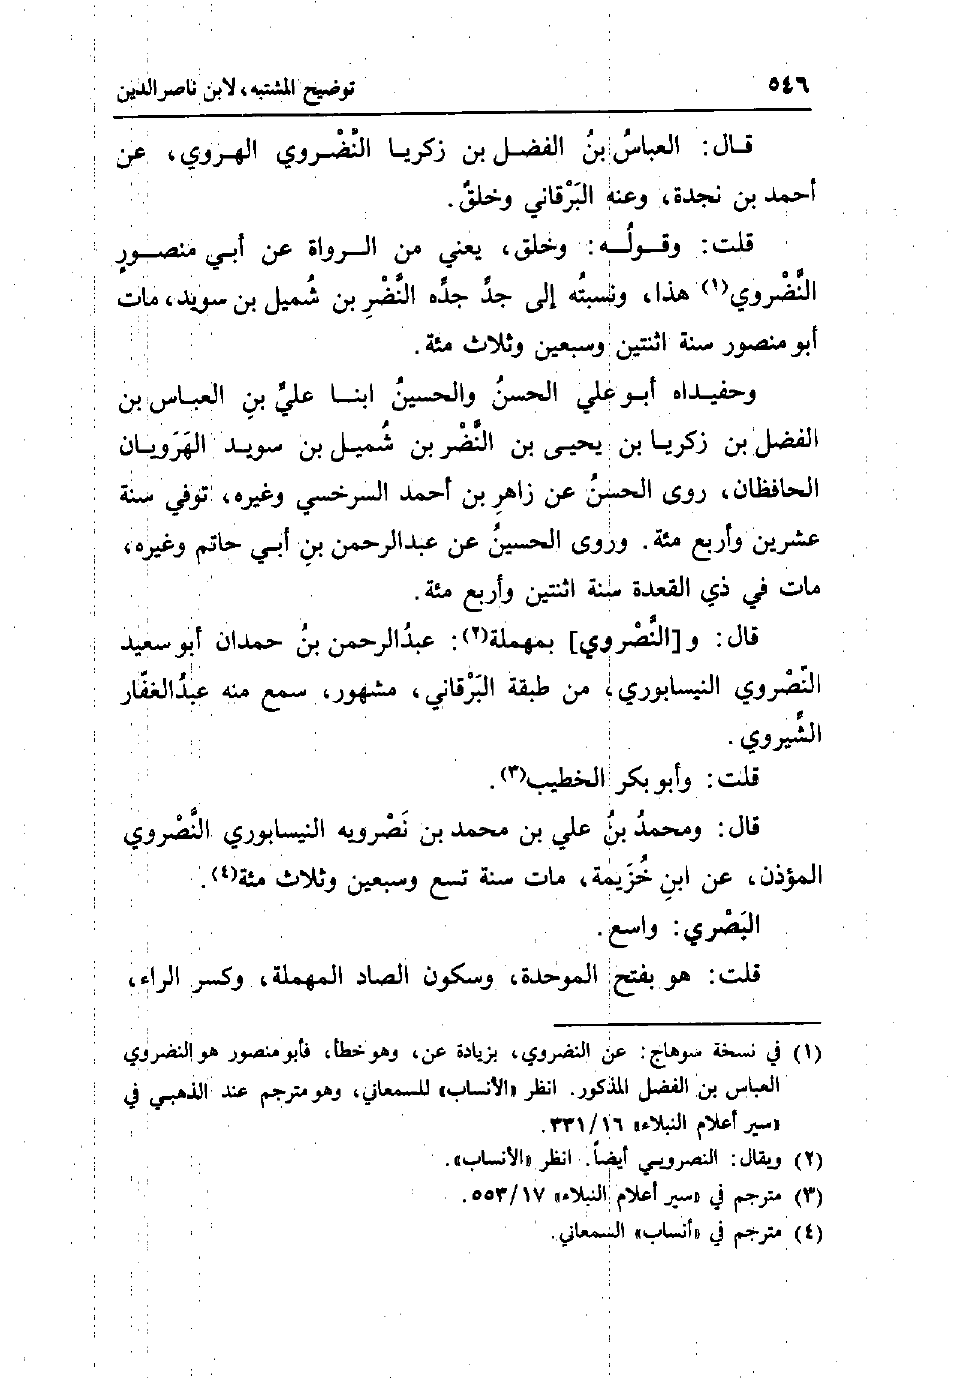 ٥٤٦ توضيح المشتبه، لابن ناصر الدين
قال: العباسُ بنُ الفضل بن زكريا النَّضْروي الهروي، عن
أحمد بن نجدة، وعنه البَرْقاني وخلقٌ.
قلت: وقولُه: وخلق، يعني من الرواة عن أبي منصورٍ
النَّضْروي(١) هذا، ونسبتُه إلى جدِّ جدِّه النَّضْرِ بن شُميل بن سويد، مات
أبو منصور سنة اثنتين وسبعين وثلاث مئة.
وحفيداه أبو علي الحسنُ والحسينُ ابنا عليِّ بنِ العباس بن
الفضل بن زكريا بن يحيى بن النَّضْر بن شُميل بن سويد الهَرَويان
الحافظان، روى الحسنُ عن زاهرِ بن أحمد السرخسي وغيره، توفي سنة
عشرين وأربع مئة. وروى الحسينُ عن عبدالرحمن بنِ أبي حاتم وغيره،
مات في ذي القعدة سنة اثنتين وأربع مئة.
قال: و [النَّصْروي] بمهملة(٢): عبدُالرحمن بنُ حمدان أبو سعيد
النَّصْروي النيسابوري، من طبقة البَرْقاني، مشهور، سمع منه عبدُالغفَّار
الشِّيروي.
قلت: وأبو بكر الخطيب(٣).
قال: ومحمدُ بنُ علي بن محمد بن نَصْرويه النيسابوري النَّصْروي
المؤذن، عن ابنِ خُزَيمة، مات سنة تسع وسبعين وثلاث مئة(٤).
البَصْري: واسع.
قلت: هو بفتح الموحدة، وسكون الصاد المهملة، وكسر الراء،
(١) في نسخة سوهاج: عن النضروي، بزيادة عن، وهو خطأ، فأبو منصور هو النضروي
العباس بن الفضل المذكور. انظر «الأنساب» للسمعاني، وهو مترجم عند الذهبي في
«سير أعلام النبلاء» ٣٣١/١٦.
(٢) ويقال: النصرويي أيضاً. انظر «الأنساب».
(٣) مترجم في «سير أعلام النبلاء» ٥٥٣/١٧.
(٤) مترجم في «أنساب» السمعاني.